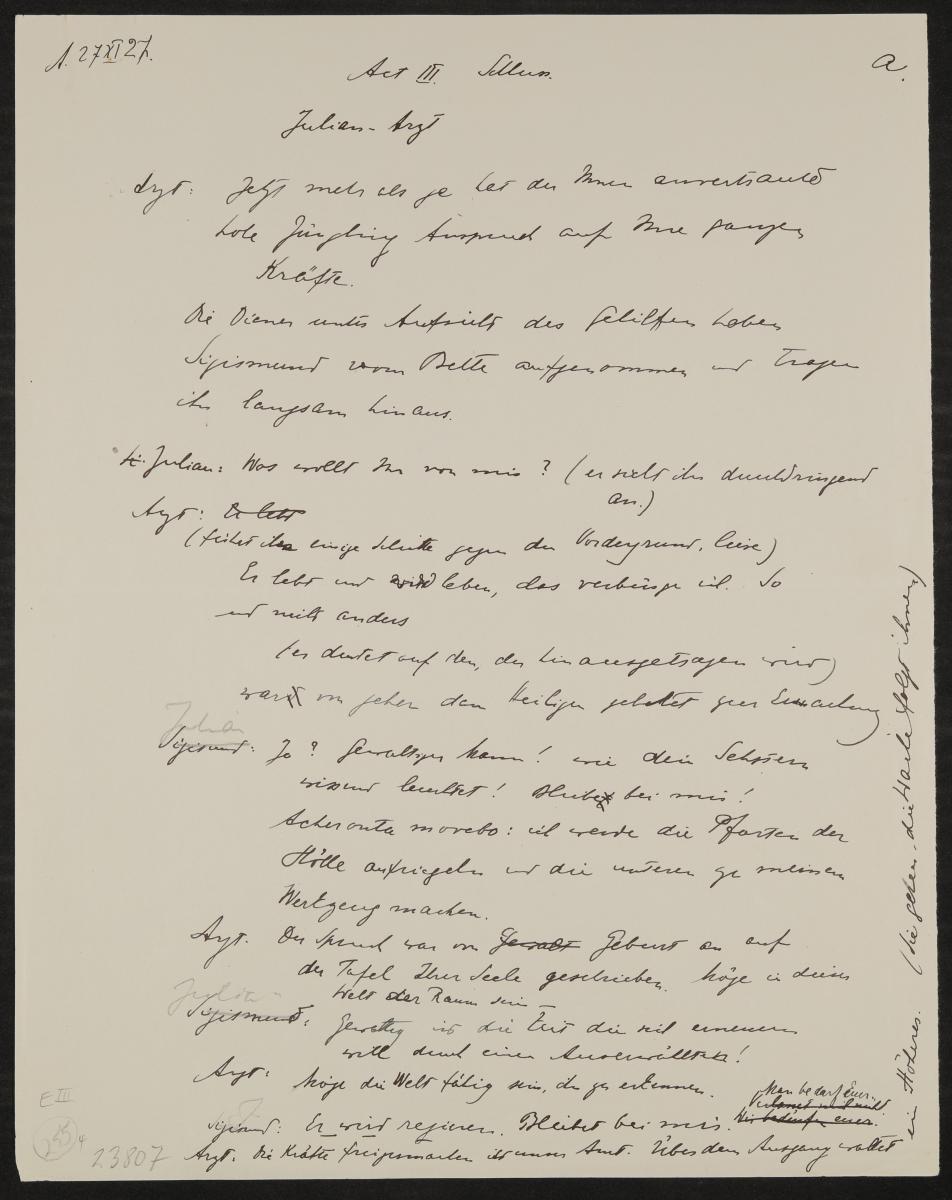 A. 27 XI 27.
a.
Act III. Schluss.
Julian - Arzt
Arzt: Jetzt mehr als je hat der Ihnen anvertraute
hohe Jüngling Anspruch auf Ihre ganzen
Kräfte.
Die Diener unter Aufsicht des Gehilfen haben
Sigismund vom Bette aufgenommen und tragen
ihn langsam hinaus.
Julian: Was wollt Ihr von mir? (er sieht ihn durchdringend
an.)
Arzt: Er lebt
(führt ihn einige Schritte gegen den Vordergrund, leise)
Er lebt und wird leben, das verbürge ich. So
und nicht anders
(er deutet auf den, der hinausgetragen wird)
war von jeher dem Heiligen gebettet zur Erwachung
Julian
Sigismund: Ja? Gewaltiger Mann! wie dein Sehstern
wissend leuchtet! Bleibe bei mir!
Acheronta movebo: ich werde die Pforten der
Hölle aufriegeln und die unteren zu meinem
Werkzeug machen.
Arzt. Der Spruch war von Gewalt Geburt an auf
der Tafel Ihrer Seele geschrieben. Möge in dieser
Welt der Raum sein —
Julian
Sigismund: Gewaltig ist die Zeit die sich erneuern
will durch einen Auserwählten!
Arzt: Möge die Welt fähig sein, ihn zu erkennen.
Man bedarf Euer.
verlasset mich nicht
Wir bedürfen euer.
Sigismund: Er wird regieren. Bleibet bei mir.
Arzt. Die Kräfte freizumachen ist unser Amt. Über dem Ausgang waltet
ein Höheres. (Sie gehen, die Wache folgt ihnen)
E III
4
23807